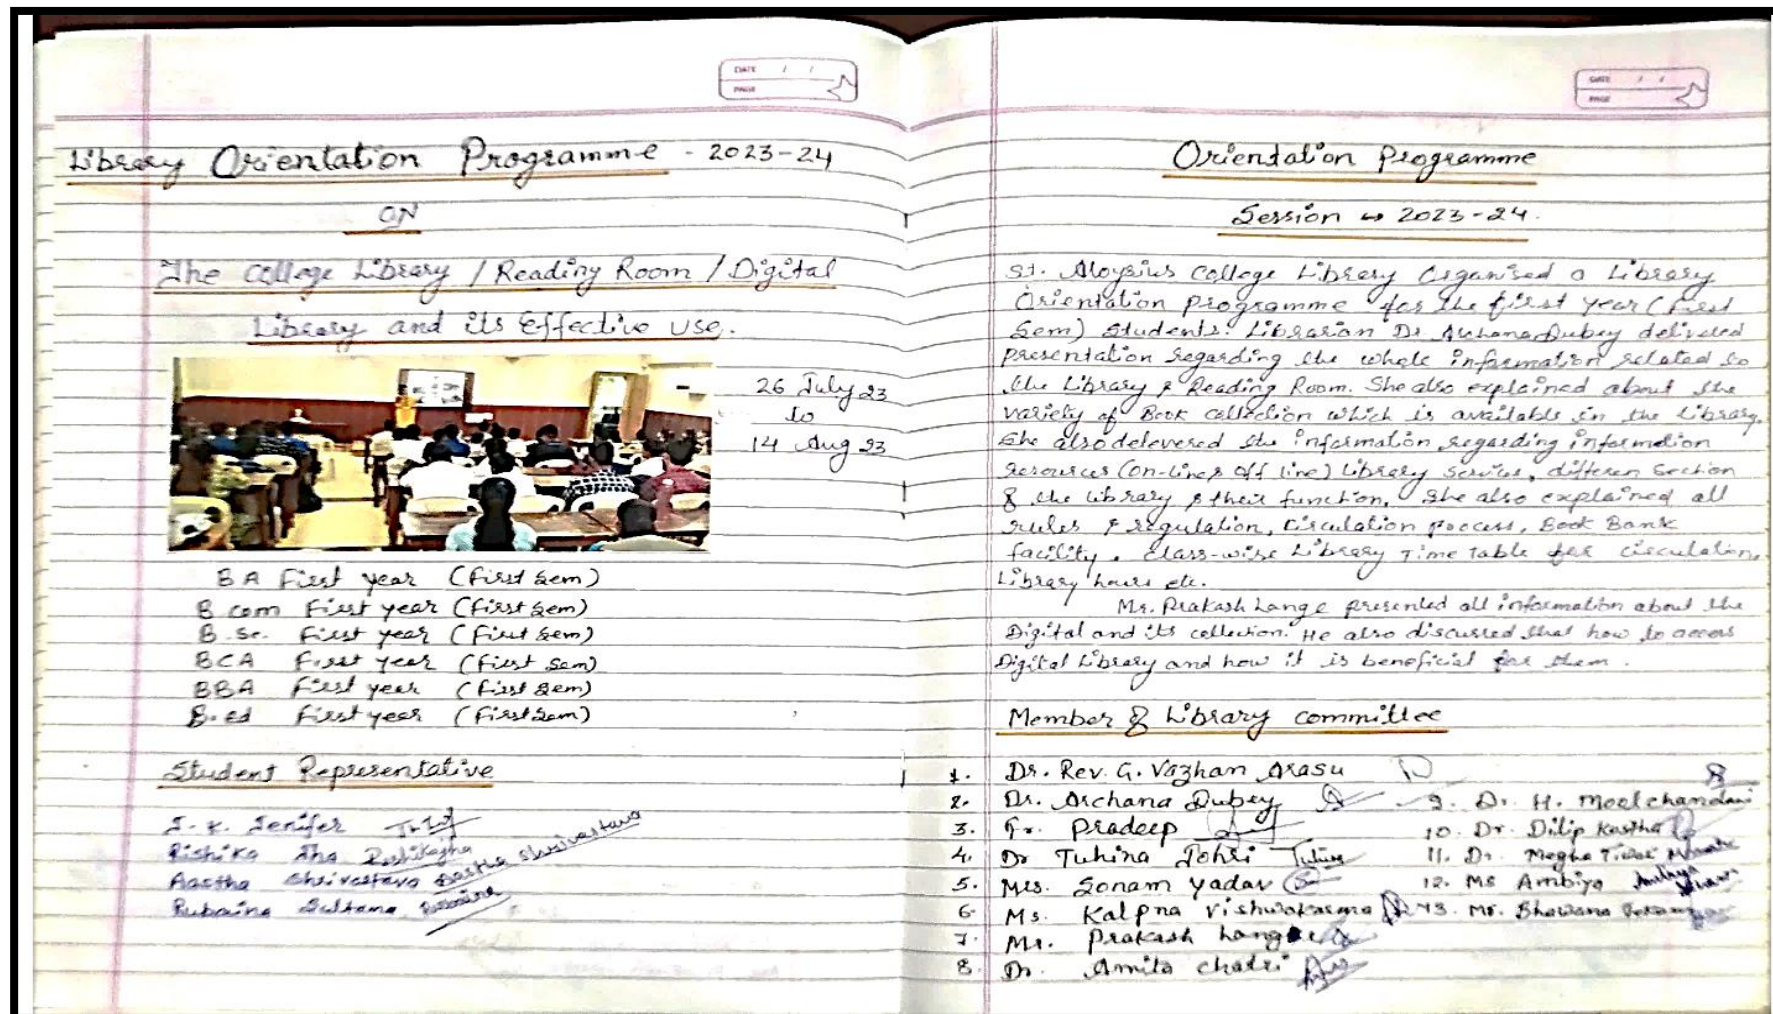 DATE / /
PAGE
Library Orientation Programme - 2023-24
ON
The College Library / Reading Room / Digital
Library and its Effective Use.
26 July 23
to
14 Aug 23
BA First year (First Sem)
B com First year (First Sem)
B.Sc. First year (First Sem)
BCA First year (First Sem)
BBA First year (First Sem)
B.ed First year (First Sem)
Student Representative
J. K. Jenifer
Rishika Jha Rishikajha
Aastha Shrivastava Aastha Shrivastava
Rubaina Sultana Rubaina
DATE / /
PAGE
Orientation Programme
Session ↔ 2023-24.
St. Aloysius College Library Organised a Library
Orientation Programme for the first Year (First
Sem) Students. Librarian Dr Archana Dubey delivered
presentation regarding the whole information related to
the Library & Reading Room. She also explained about the
variety of Book collection which is available in the Library.
She also delevered the information regarding information
resources (on-line & off line) Library Services, differen Section
of the library & their function. She also explained all
rules & regulation, Circulation process, Book Bank
facility. Class-wise Library Time table for circulation,
Library hours etc.
Mr. Prakash Lange presented all information about the
Digital and its collection. He also discussed that how to access
Digital Library and how it is beneficial for them.
Member of Library committee
1. Dr. Rev. G. Vazhan Arasu
2. Dr. Archana Dubey
3. Fr. Pradeep
4. Dr Tuhina Johri Tuhina
5. Mrs. Sonam Yadav
6. Ms. Kalpna Vishwakarma
7. Mr. Prakash Lange
8. Dr. Amita Chatri
9. Dr. H. Moolchandani
10. Dr. Dilip Kastha
11. Dr. Megha Tiwari
12. Ms Ambiya
13. Mr. Bhawana